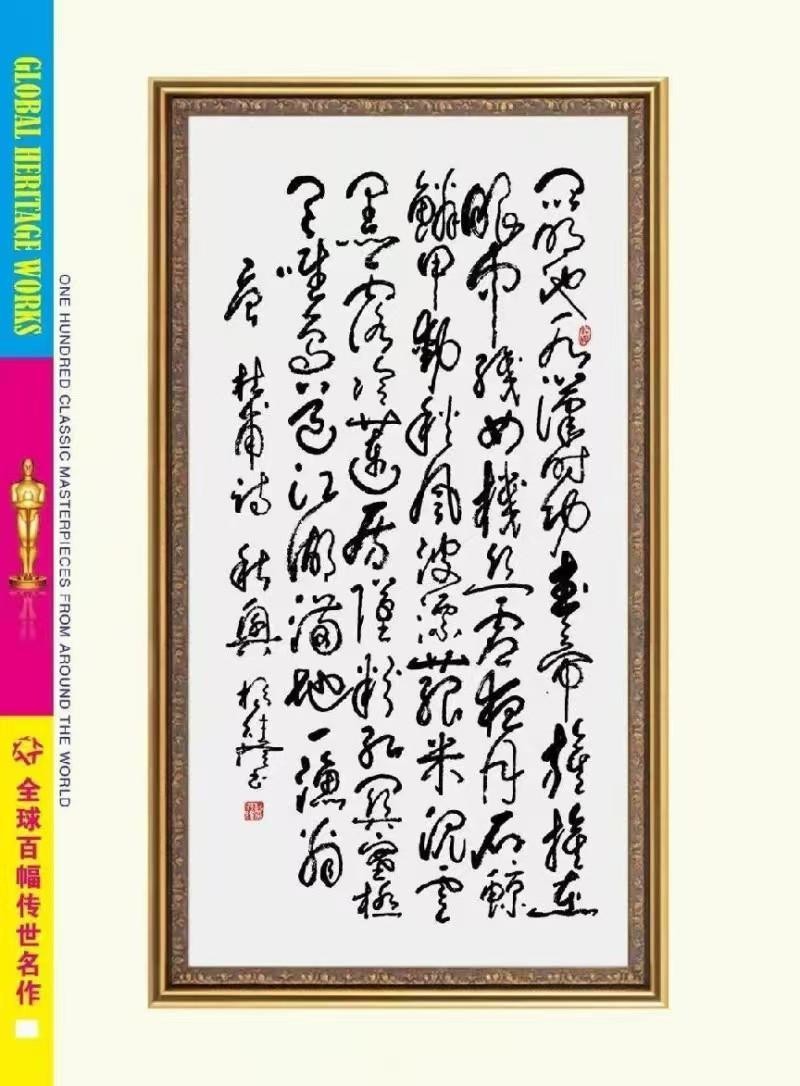 GLOBAL HERITAGE WORKS
ONE HUNDRED CLASSIC MASTERPIECES FROM AROUND THE WORLD
全球百幅传世名作
昆明池水漢时功武帝旌旗在
眼中織女機絲虚夜月石鯨
鳞甲動秋風波漂菰米沉雲
黑露冷蓮房墜粉红関塞極
天唯鸟道江湖满地一渔翁
唐 杜甫诗 秋興